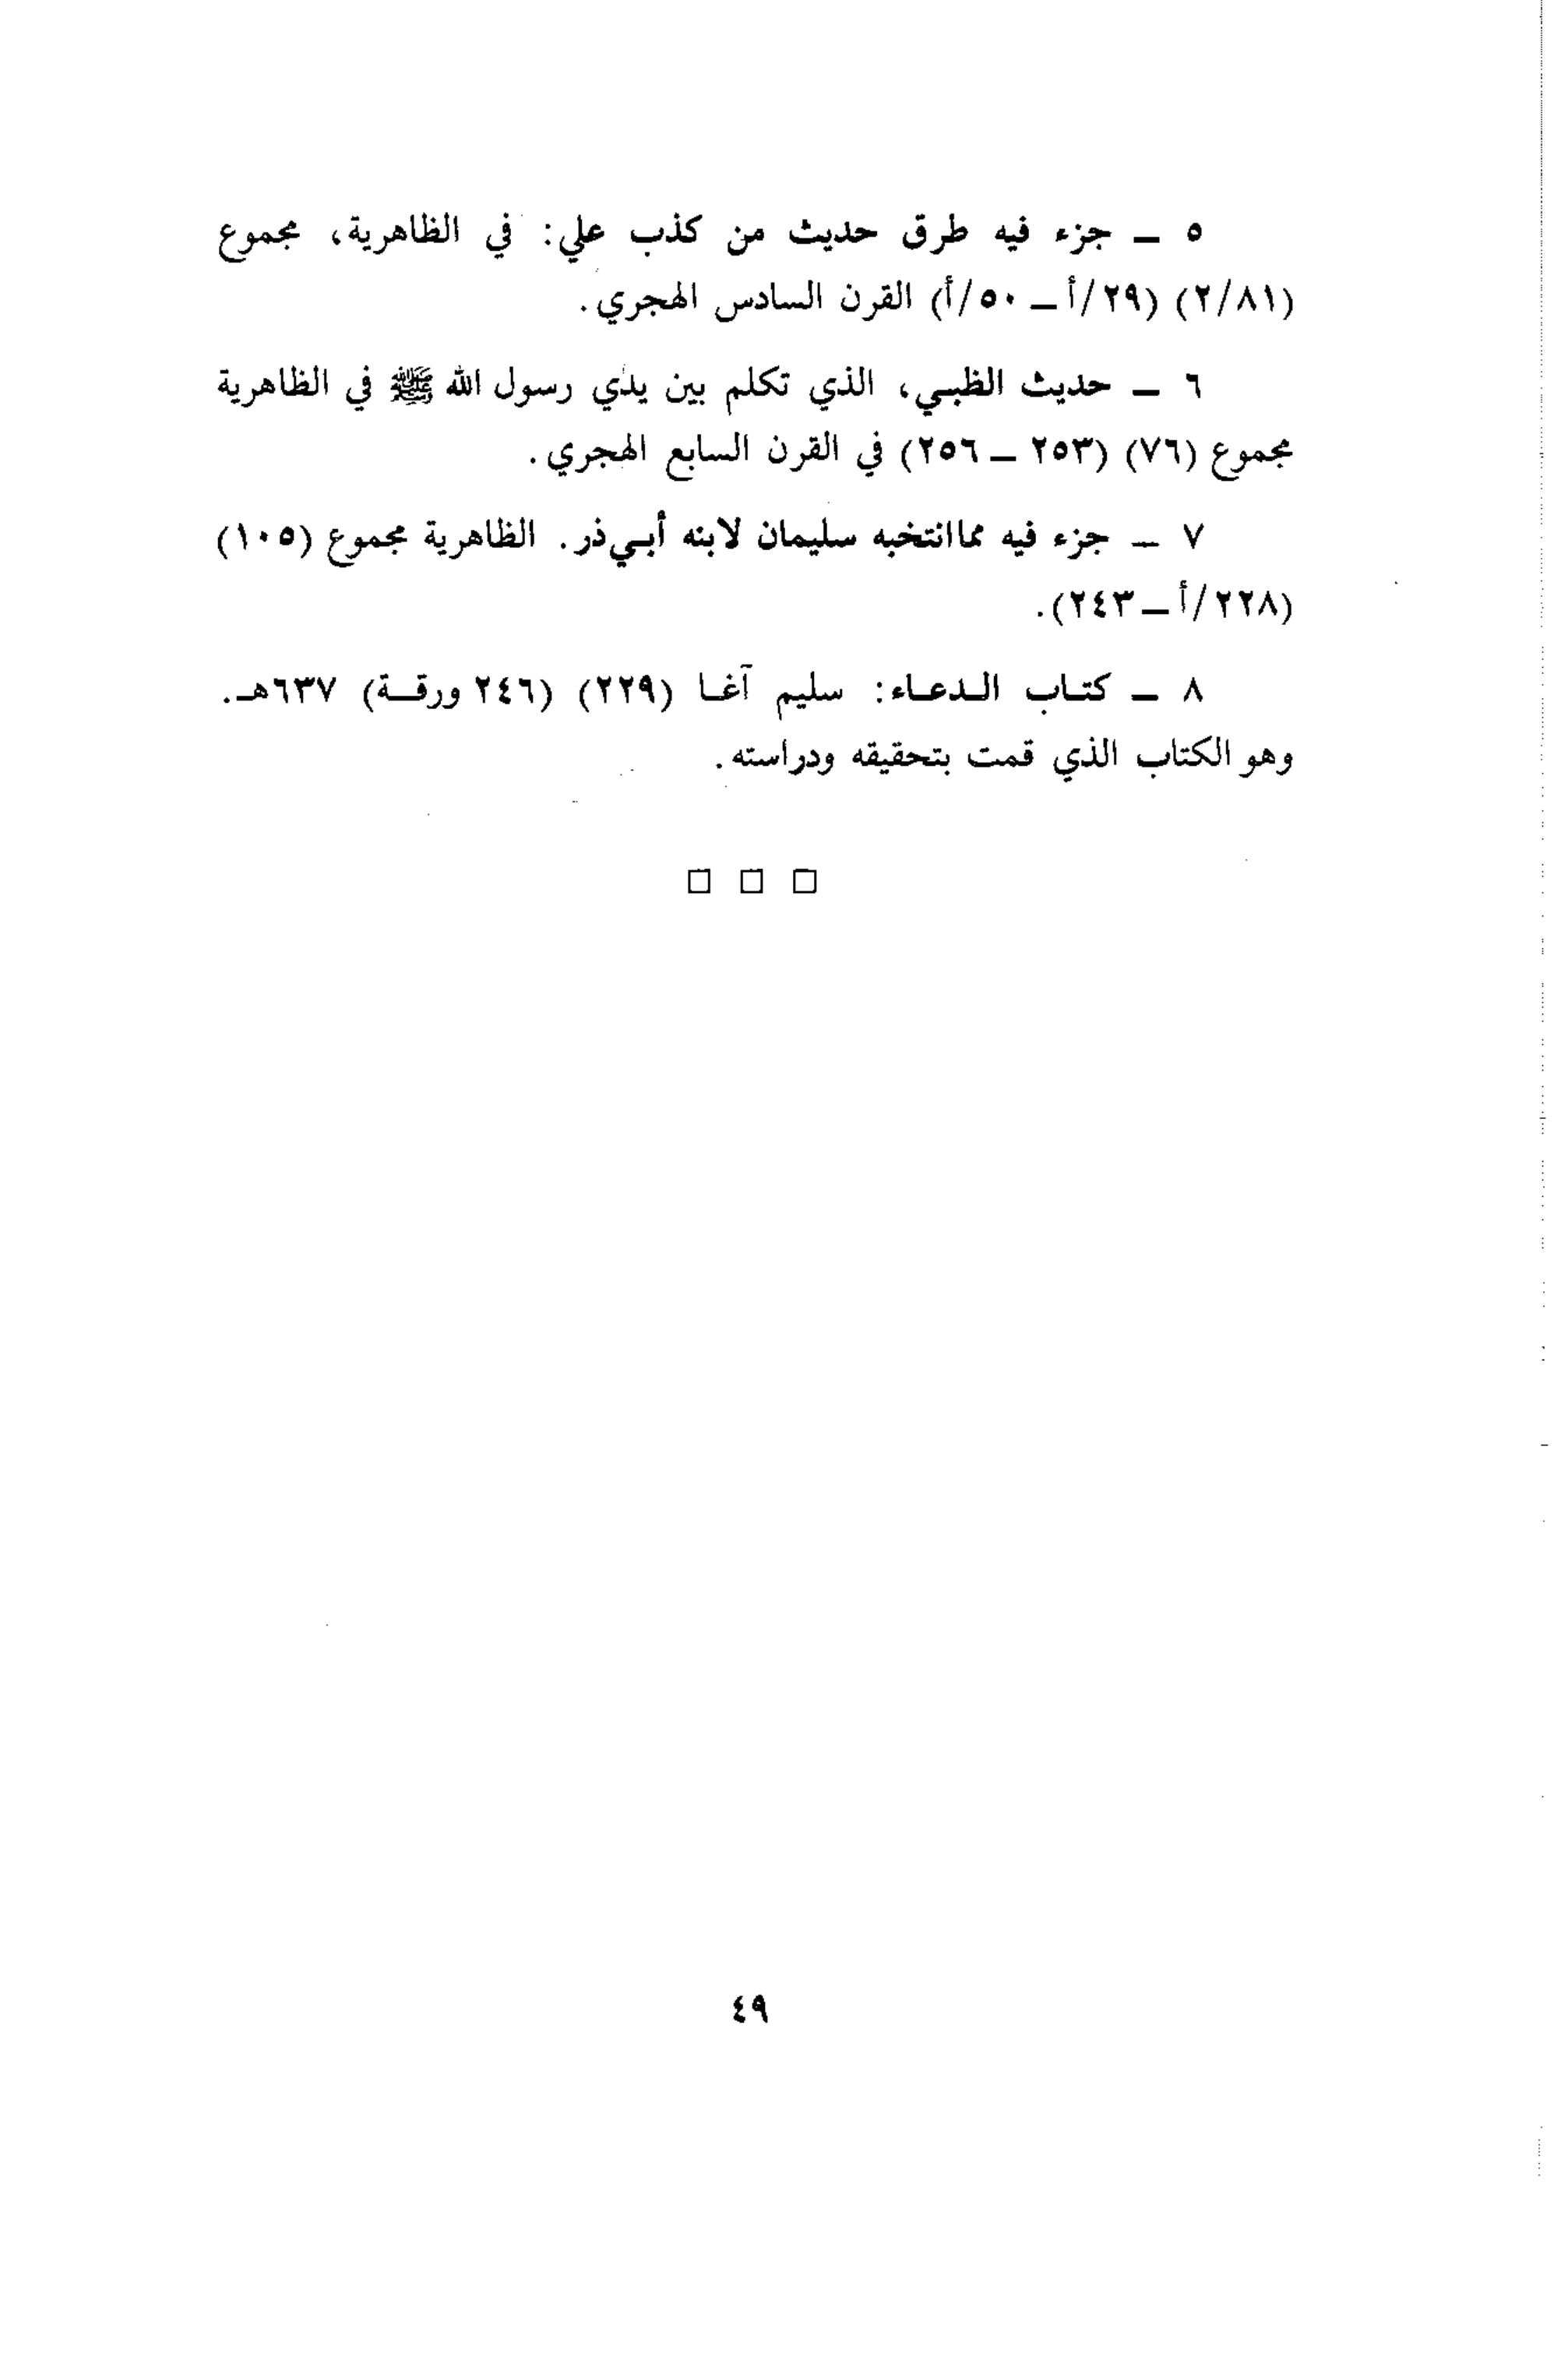 ٥ ــ جزء فيه طرق حديث من كذب علي: في الظاهرية، مجموع
(٢/٨١) (٢٩/أ ــ ٥٠/أ) القرن السادس الهجري.
٦ ــ حديث الظبي، الذي تكلم بين يدي رسول الله ﷺ في الظاهرية
مجموع (٧٦) (٢٥٣ ــ ٢٥٦) في القرن السابع الهجري.
٧ ــ جزء فيه مما انتخبه سليمان لابنه أبي ذر. الظاهرية مجموع (١٠٥)
(٢٢٨/أ ــ ٢٤٣).
٨ ــ كتاب الدعاء: سليم آغا (٢٢٩) (٢٤٦ ورقة) ٦٣٧هـ.
وهو الكتاب الذي قمت بتحقيقه ودراسته.
□ □ □
٤٩